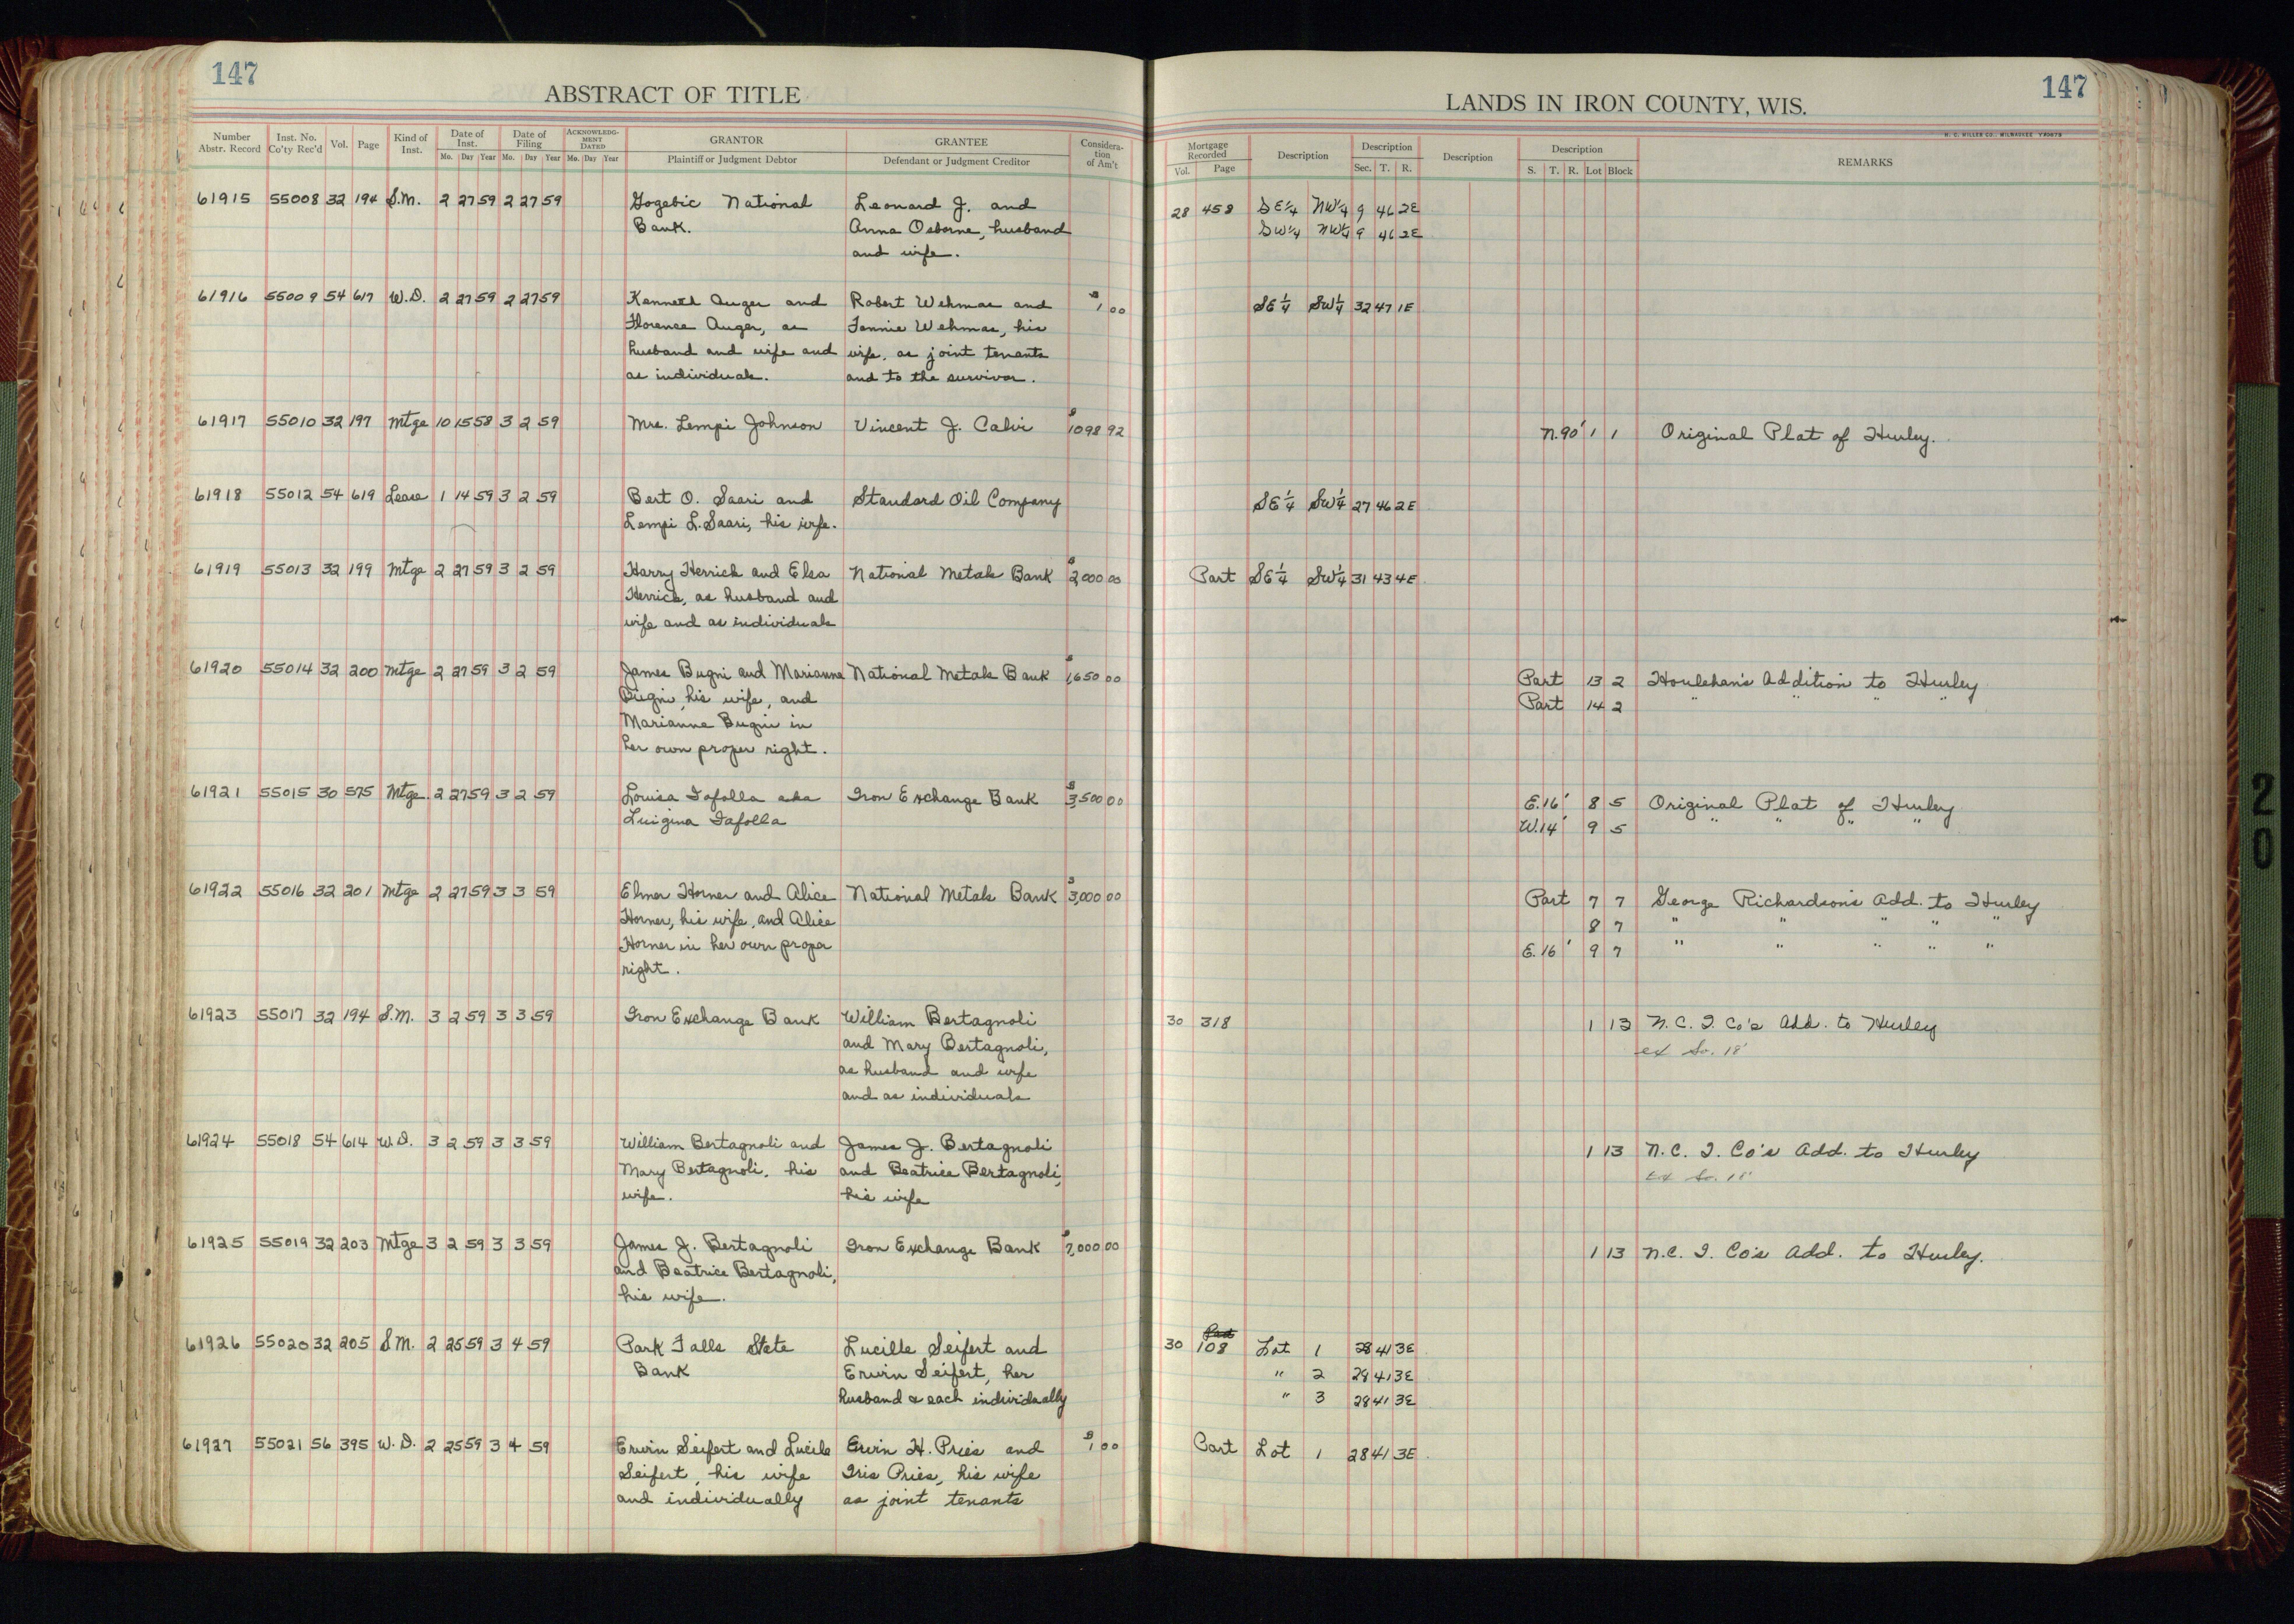 147
ABSTRACT OF TITLE
Number Abstr. Record | Inst. No. Co'ty Rec'd | Vol. | Page | Kind of Inst. | Date of Inst. Mo. Day Year | Date of Filing Mo. Day Year | ACKNOWLEDGMENT DATED Mo. Day Year | GRANTOR Plaintiff or Judgment Debtor | GRANTEE Defendant or Judgment Creditor | Consideration of Am't
61915 55008 32 194 S.M. 2 27 59 2 27 59 Gogebic National Leonard J. and
Bank. Anna Osborne, husband
and wife.
61916 55009 54 617 W.D. 2 27 59 2 27 59 Kenneth Auger and Robert Wehmas and $1 00
Florence Auger, as Fannie Wehmas, his
husband and wife and wife, as joint tenants
as individuals. and to the survivor.
61917 55010 32 197 Mtge 10 15 58 3 2 59 Mrs. Lempi Johnson Vincent J. Calvi $1098 92
61918 55012 54 619 Lease 1 14 59 3 2 59 Bert O. Saari and Standard Oil Company
Lempi L. Saari, his wife.
61919 55013 32 199 Mtge 2 27 59 3 2 59 Harry Herrick and Elsa National Metals Bank $2,000 00
Herrick, as husband and
wife and as individuals
61920 55014 32 200 Mtge 2 27 59 3 2 59 James Bugni and Marianne National Metals Bank $1,650 00
Bugni, his wife, and
Marianne Bugni in
her own proper right.
61921 55015 30 575 Mtge. 2 27 59 3 2 59 Louisa Iafolla aka Iron Exchange Bank $3,500 00
Luigina Iafolla
61922 55016 32 201 Mtge 2 27 59 3 3 59 Elmer Horner and Alice National Metals Bank $3,000 00
Horner, his wife, and Alice
Horner in her own proper
right.
61923 55017 32 194 S.M. 3 2 59 3 3 59 Iron Exchange Bank William Bertagnoli
and Mary Bertagnoli,
as husband and wife
and as individuals
61924 55018 54 614 W.D. 3 2 59 3 3 59 William Bertagnoli and James J. Bertagnoli
Mary Bertagnoli, his and Beatrice Bertagnoli,
wife. his wife
61925 55019 32 203 Mtge 3 2 59 3 3 59 James J. Bertagnoli Iron Exchange Bank $7,000 00
and Beatrice Bertagnoli,
his wife.
61926 55020 32 205 S.M. 2 25 59 3 4 59 Park Falls State Lucille Seifert and
Bank Erwin Seifert, her
husband & each individually
61927 55021 56 395 W.D. 2 25 59 3 4 59 Erwin Seifert and Lucile Erwin H. Pries and $1 00
Seifert, his wife Iris Pries, his wife
and individually as joint tenants
147
LANDS IN IRON COUNTY, WIS.
H. C. MILLER CO., MILWAUKEE
Mortgage Recorded Vol. Page | Description | Description Sec. T. R. | Description | Description S. T. R. Lot Block | REMARKS
28 458 SE¼ NW¼ 9 46 2E
SW¼ NW¼ 9 46 2E
SE¼ SW¼ 32 47 1E
N.90' 1 1 Original Plat of Hurley.
SE¼ SW¼ 27 46 2E
Part SE¼ SW¼ 31 43 4E
Part 13 2 Houlehan's Addition to Hurley
Part 14 2 " " " "
E.16' 8 5 Original Plat of Hurley
W.14' 9 5 " " " "
Part 7 7 George Richardson's Add. to Hurley
8 7 " " " " "
E.16' 9 7 " " " " "
30 318 1 13 N.C.I. Co's Add. to Hurley
ex So. 18'
1 13 N.C.I. Co's Add. to Hurley
ex So. 18'
1 13 N.C.I. Co's Add. to Hurley.
Part
30 108 Lot 1 28 41 3E
" 2 28 41 3E
" 3 28 41 3E
Part Lot 1 28 41 3E
20